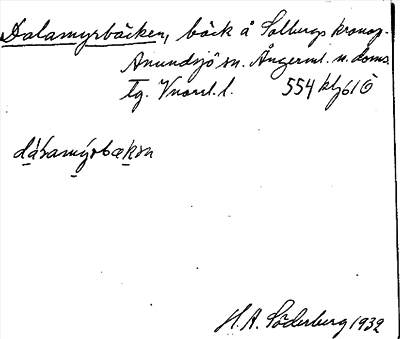 Dalamyrbäcken, bäck å Solbergs kronog.
Anundsjö sn. Ångerml. n. doms.
tg. Vnorrl. l. 554 klj 61 Ö
dálamýrbækɘn
H. A. Söderberg 1932